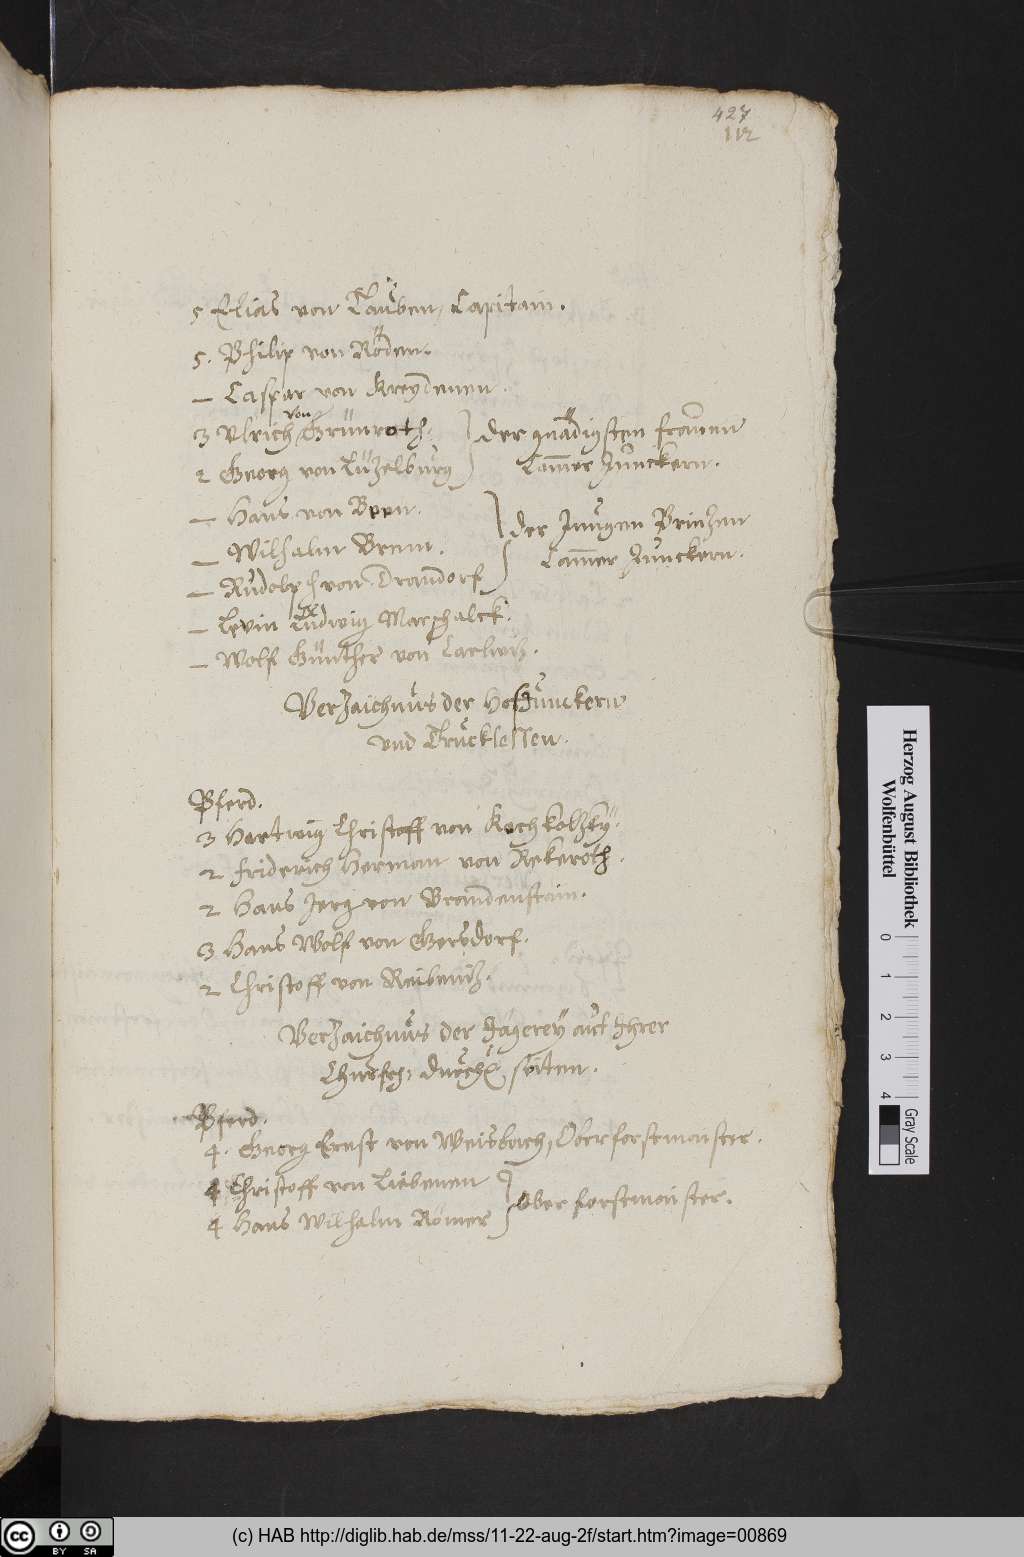 427
112
5 Elias von Tauben, Capitain.
5. Philip von Röden.
— Caspar von Kreydemen.
3 Ulrich von Grünroth.
2 Georg von Lüzelburg
der gnädigsten frauen
Cam̄er Junckern.
— Hans von Been.
— Wilhalm Brem.
— Rudolph von Drandorf
der Jungen Brinzen
Cam̄er Junckern.
— Levin Ludwig Marschalck.
— Wolf Günther von Carlwiz.
Verzaichnus der Hoffjunckern
vnd Trucksessen.
Pferd.
3 Hartwig Christoff von
2 friderich Herman von Rekeroth.
2 Hans Jerg von Brandenstain.
3 Hans Wolf von Gersdorf.
2 Christoff von Reibeniz.
Verzaichnus der Jägerey auf Ihrer
Churfch. Durchl. seiten.
Pferd.
4. Georg Ernst von Weisbach, Oberforstmaister.
4 Christoff von Liebenen
4 Hans Wilhalm Römer
Ober forstmaister.
Herzog August Bibliothek
Wolfenbüttel
0 1 2 3 4
Gray Scale
cc BY SA
(c) HAB http://diglib.hab.de/mss/11-22-aug-2f/start.htm?image=00869